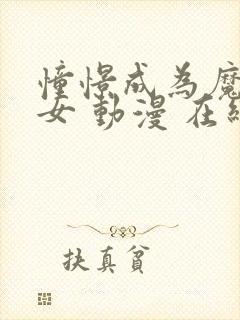 憧憬成為魔
女動漫在線
扶真貧